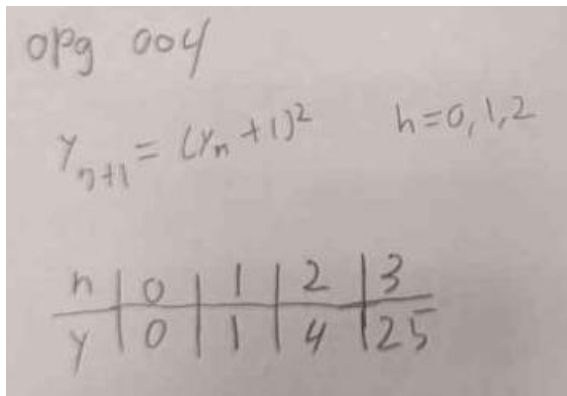 opg 004
y_{n+1} = (y_n + 1)² n=0,1,2
n | 0 | 1 | 2 | 3
y | 0 | 1 | 4 | 25